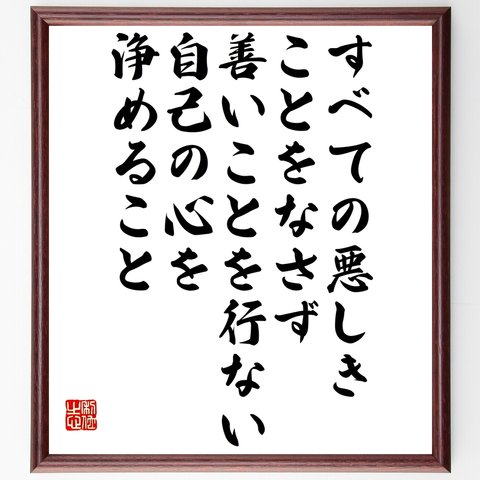 すべての悪しき
ことをなさず
善いことを行ない
自己の心を
浄めること